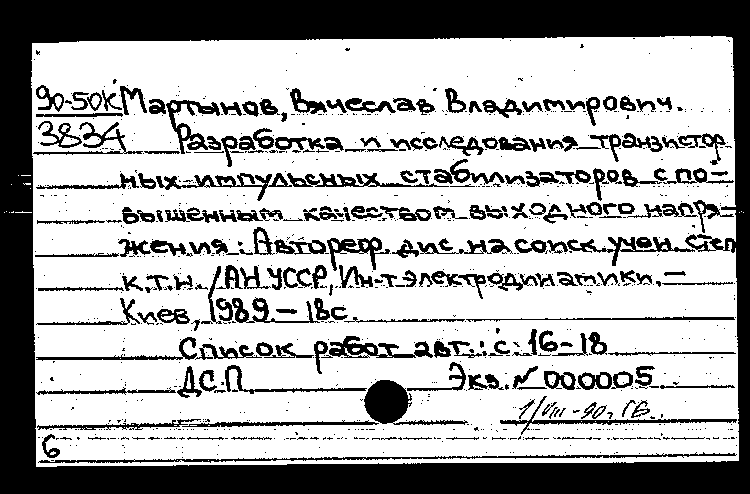 90-50К Мартынов, Вячеслав Владимирович.
3834 Разработка и исследования транзистор
ных импульсных стабилизаторов с по-
вышенным качеством выходного напря-
жения: Автореф. дис. на соиск. учен. степ
к.т.н. /АН УССР, Ин-т электродинамики. —
Киев, 1989. — 18с.
Список работ авт.: с. 16-18
ДСП. Экз. № 000005
1/VIII-90г. ГВ.
6